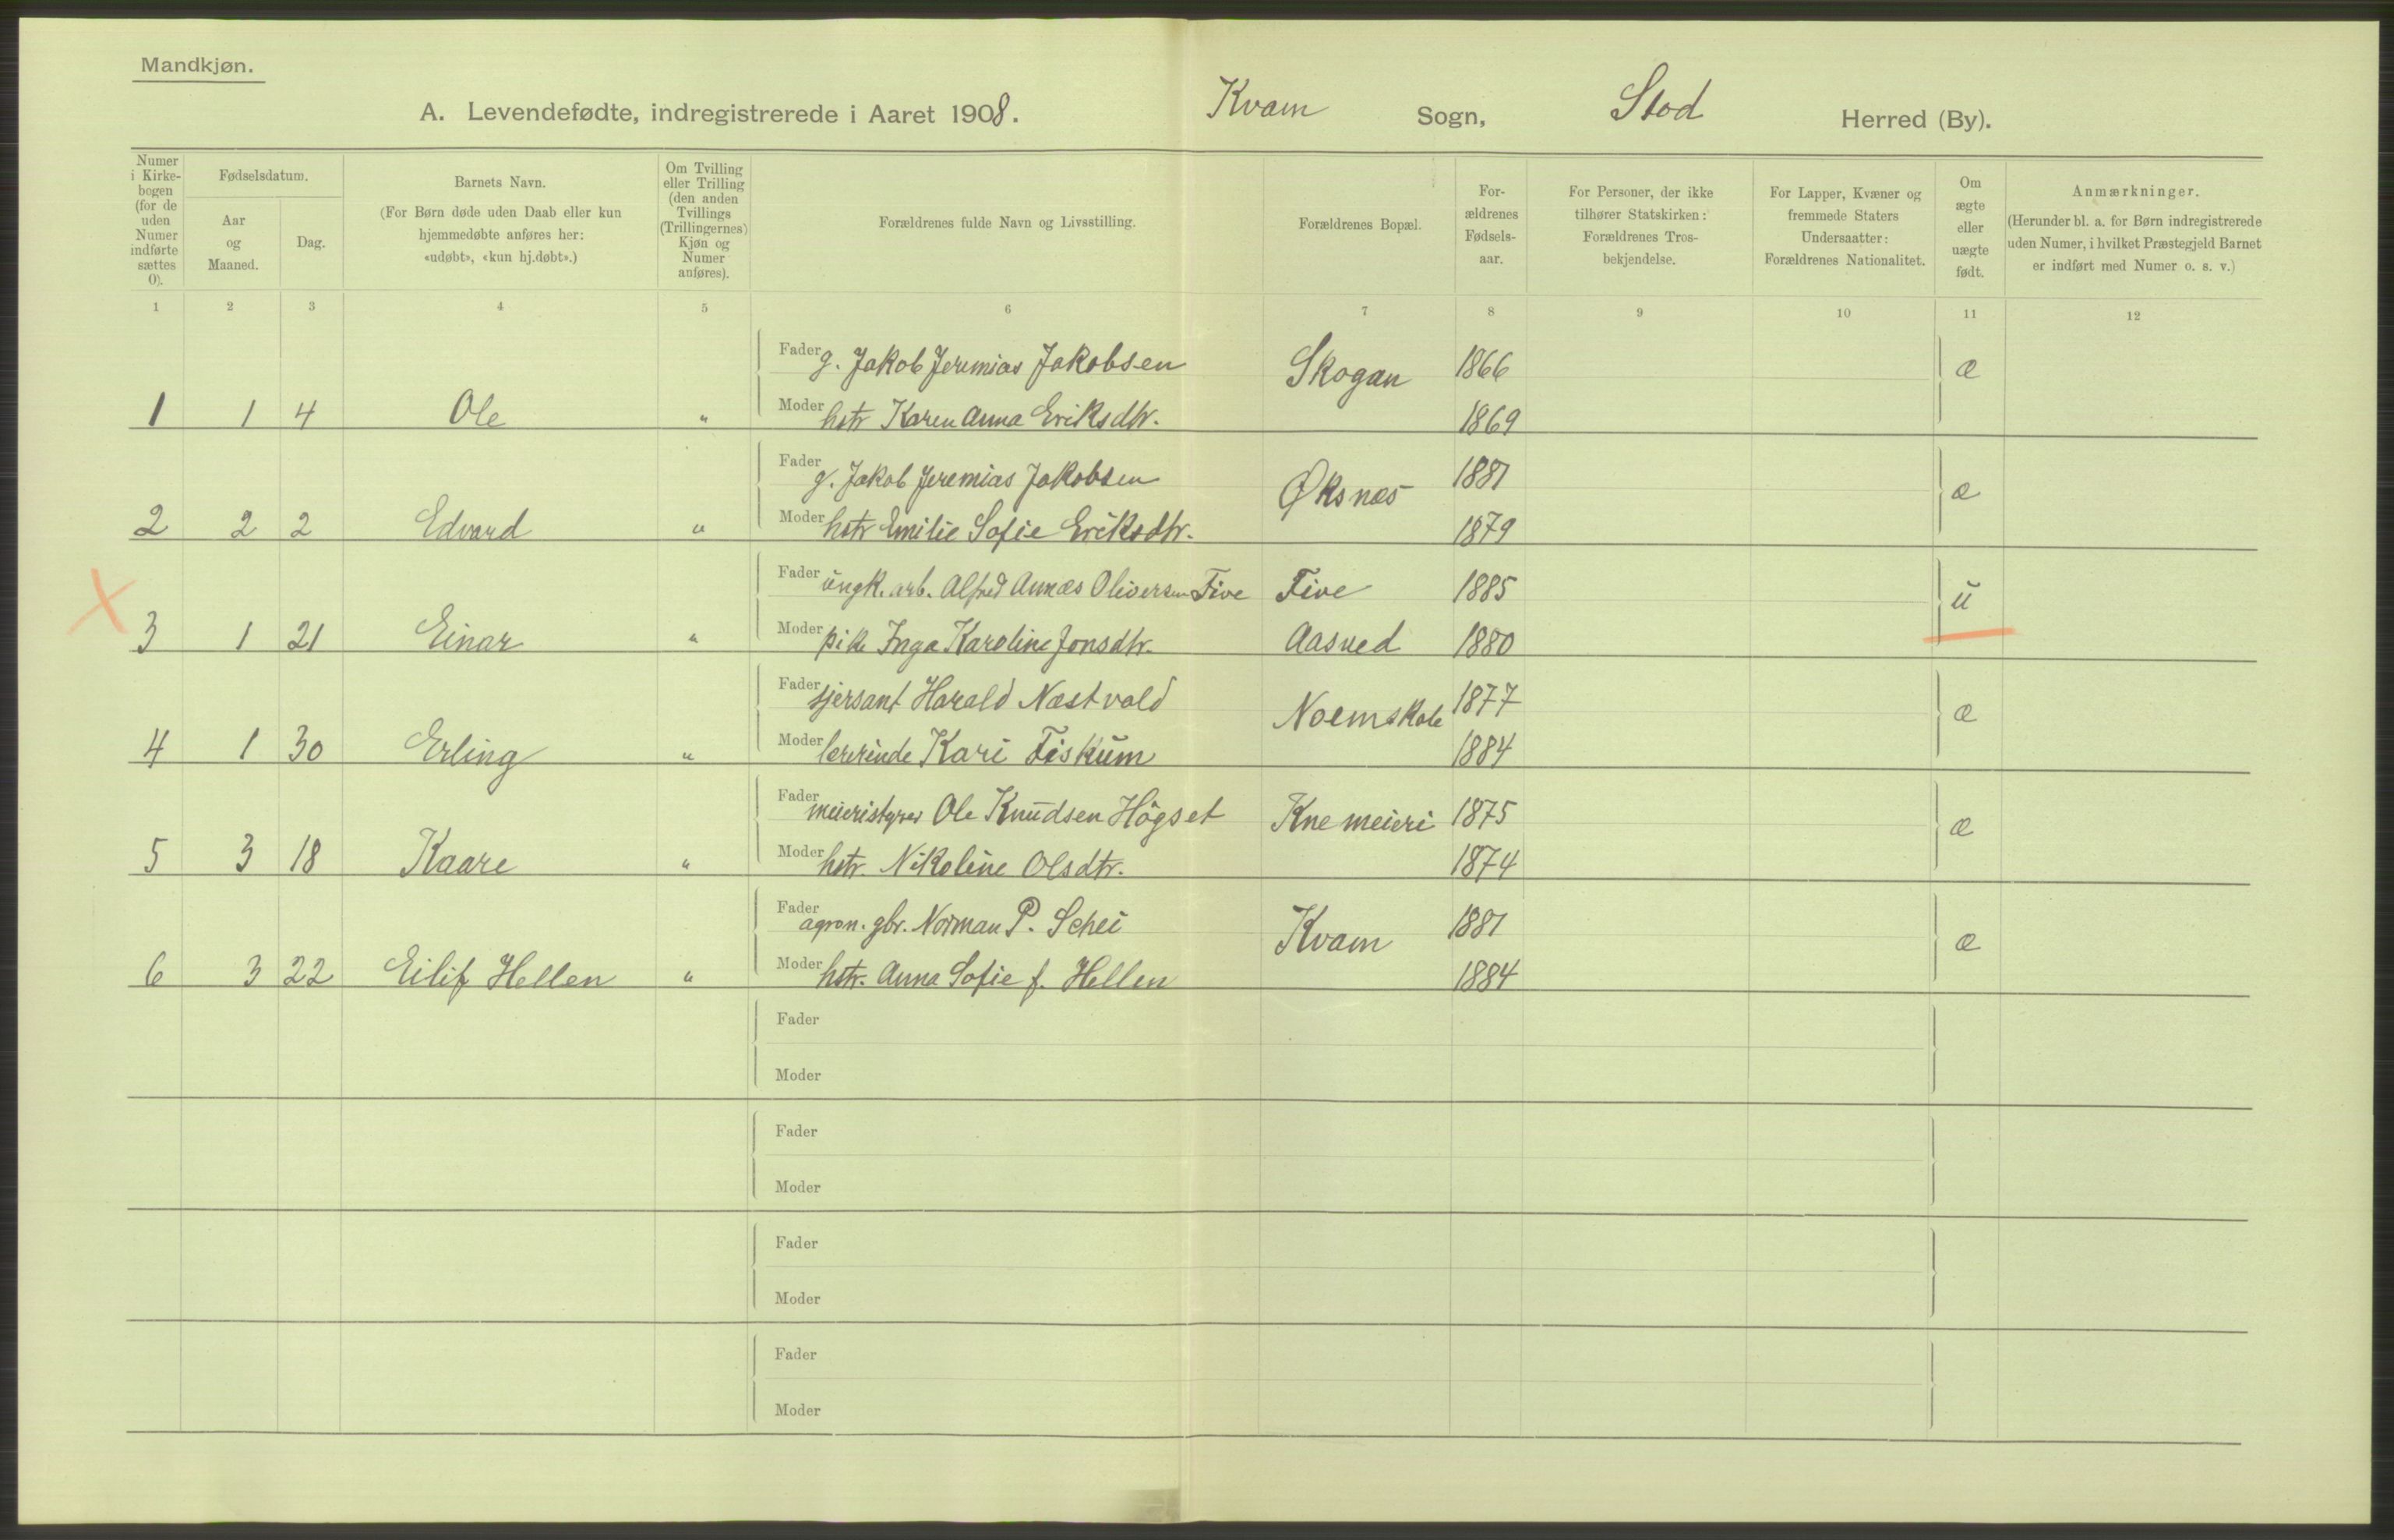 Mandkjøn.
A. Levendefødte, indregistrerede i Aaret 1908. Kvam Sogn, Stod Herred (By).
Numer i Kirke-bogen (for de uden Numer indførte sættes 0).
Fødselsdatum.
Aar og Maaned.
Dag.
Barnets Navn.
(For Børn døde uden Daab eller kun
hjemmedøbte anføres her:
«udøbt», «kun hj.døbt».)
Om Tvilling
eller Trilling
(den anden
Tvillings
(Trillingernes)
Kjøn og
Numer
anføres).
Forældrenes fulde Navn og Livsstilling.
Forældrenes Bopæl.
For-
ældrenes
Fødsels-
aar.
For Personer, der ikke
tilhører Statskirken:
Forældrenes Tros-
bekjendelse.
For Lapper, Kvæner og
fremmede Staters
Undersaatter:
Forældrenes Nationalitet.
Om
ægte
eller
uægte
født.
Anmærkninger.
(Herunder bl. a. for Børn indregistrerede
uden Numer, i hvilket Præstegjeld Barnet
er indført med Numer o. s. v.)
1 2 3 4 5 6 7 8 9 10 11 12
Fader g. Jakob Jeremias Jakobsen Skogan 1866 æ
1 1 4 Ole " Moder hstr Karen Anna Eriksdtr. 1869
Fader g. Jakob Jeremias Jakobsen Øksnæs 1881 æ
2 2 2 Edvard " Moder hstr Emilie Sofie Eriksdtr. 1879
Fader ungk. arb. Alfred Annæs Oliversen Five Five 1885 u
X 3 1 21 Einar " Moder pike Inga Karoline Jonsdtr. Aasved 1880
Fader sjersant Harald Næstvold Noemskole 1877 æ
4 1 30 Erling " Moder lærerinde Kari Fiskum 1884
Fader meieristyrer Ole Knudsen Högset Kne meieri 1875 æ
5 3 18 Kaare " Moder hstr. Nikoline Olsdtr. 1874
Fader agron. gbr. Norman P. Schei Kvam 1881 æ
6 3 22 Eilif Hellen " Moder hstr. Anna Sofie f. Hellen 1884
Fader
Moder
Fader
Moder
Fader
Moder
Fader
Moder